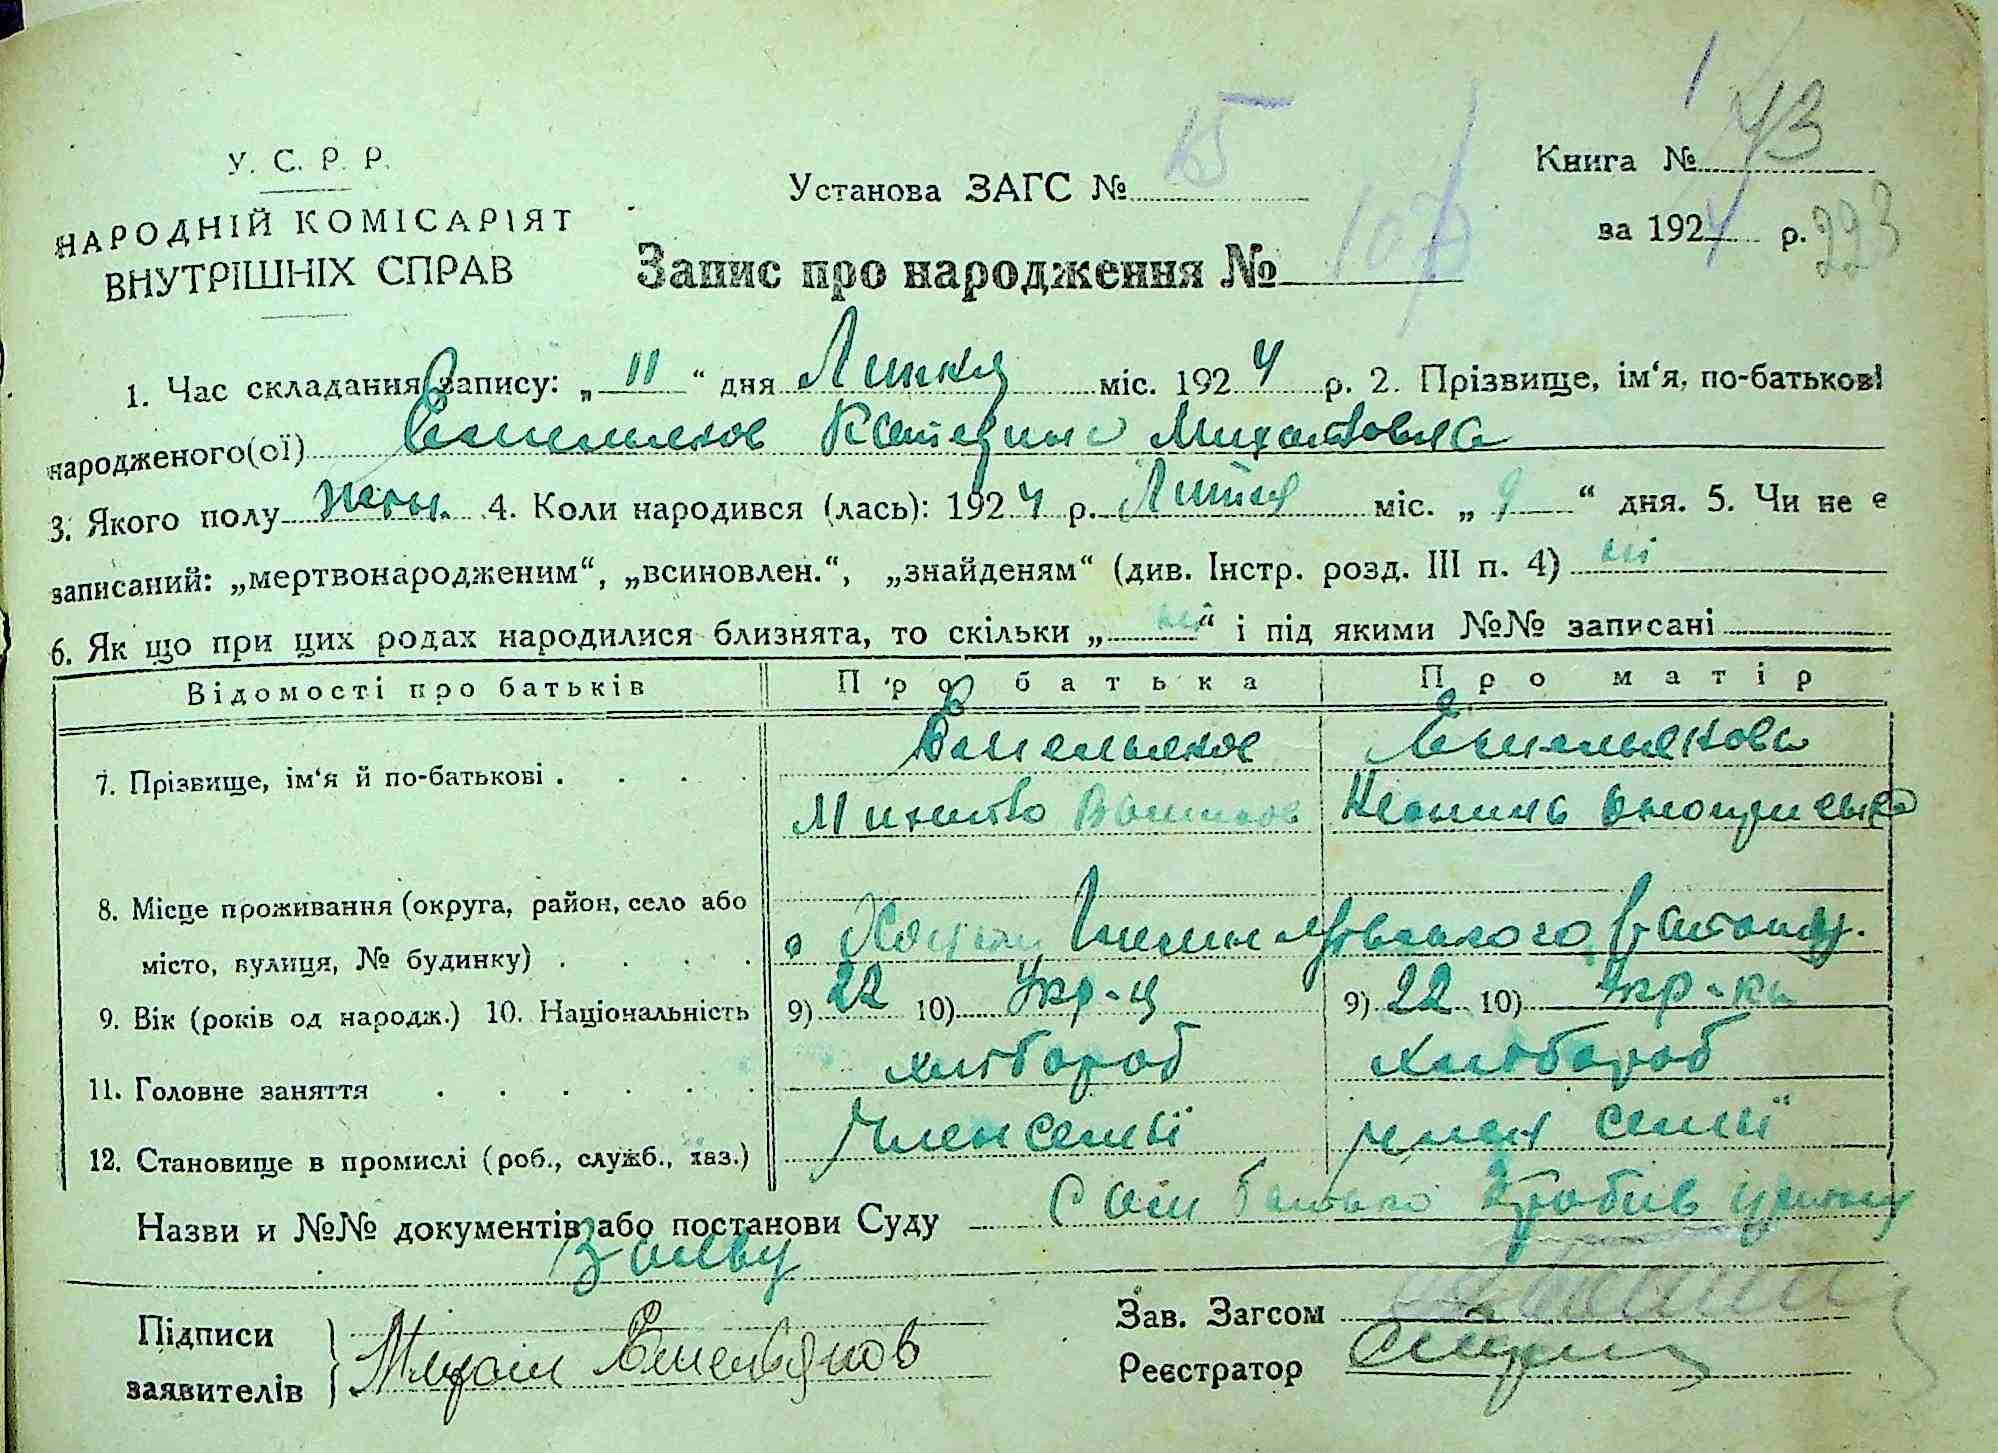 У. С. Р. Р.
НАРОДНІЙ КОМІСАРІЯТ
ВНУТРІШНІХ СПРАВ
Установа ЗАГС № 15
Книга № 43
за 1924 р. 223
Запис про народження № 107
1. Час складання запису: „ 11 “ дня Липня міс. 1924 р. 2. Прізвище, ім‘я, по-батькові
народженого(ої) Емельянов Катерина Михайловна
3. Якого полу жен. 4. Коли народився (лась): 1924 р. Липня міс. „ 9 “ дня. 5. Чи не є
записаний: „мертвонародженим“, „всиновлен.“, „знайденям“ (див. Інстр. розд. III п. 4) ні
6. Як що при цих родах народилися близнята, то скільки „ ні “ і під якими №№ записані
Відомості про батьків Про батька Про матір
7. Прізвище, ім‘я й по-батькові . . . . Емельянов Емельянова
Михайло
8. Місце проживання (округа, район, село або
місто, вулиця, № будинку) . . . .
9. Вік (років од народж.) 10. Національність 9) 22 10) Укр-ц 9) 22 10) Укр-ка
11. Головне заняття . . . . . . хлібороб хлібороб
12. Становище в промислі (роб., служб., хаз.) Член семьї член семьї
Назви и №№ документів або постанови Суду Сам батько зробив
заяву
Підписи
заявителів
Михаил Емельянов
Зав. Загсом
Реєстратор